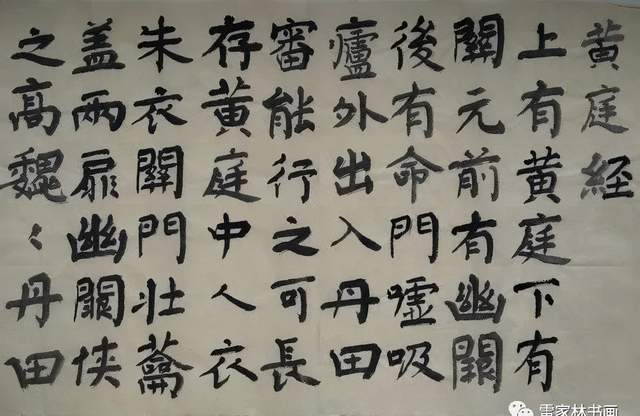 黄庭経
上有黄庭下有
關元前有幽闕
後有命門嘘吸
廬外出入丹田
審能行之可長
存黄庭中人衣
朱衣關門壮蘥
盖兩扉幽關侠
之高魏〻丹田
雷家林书画